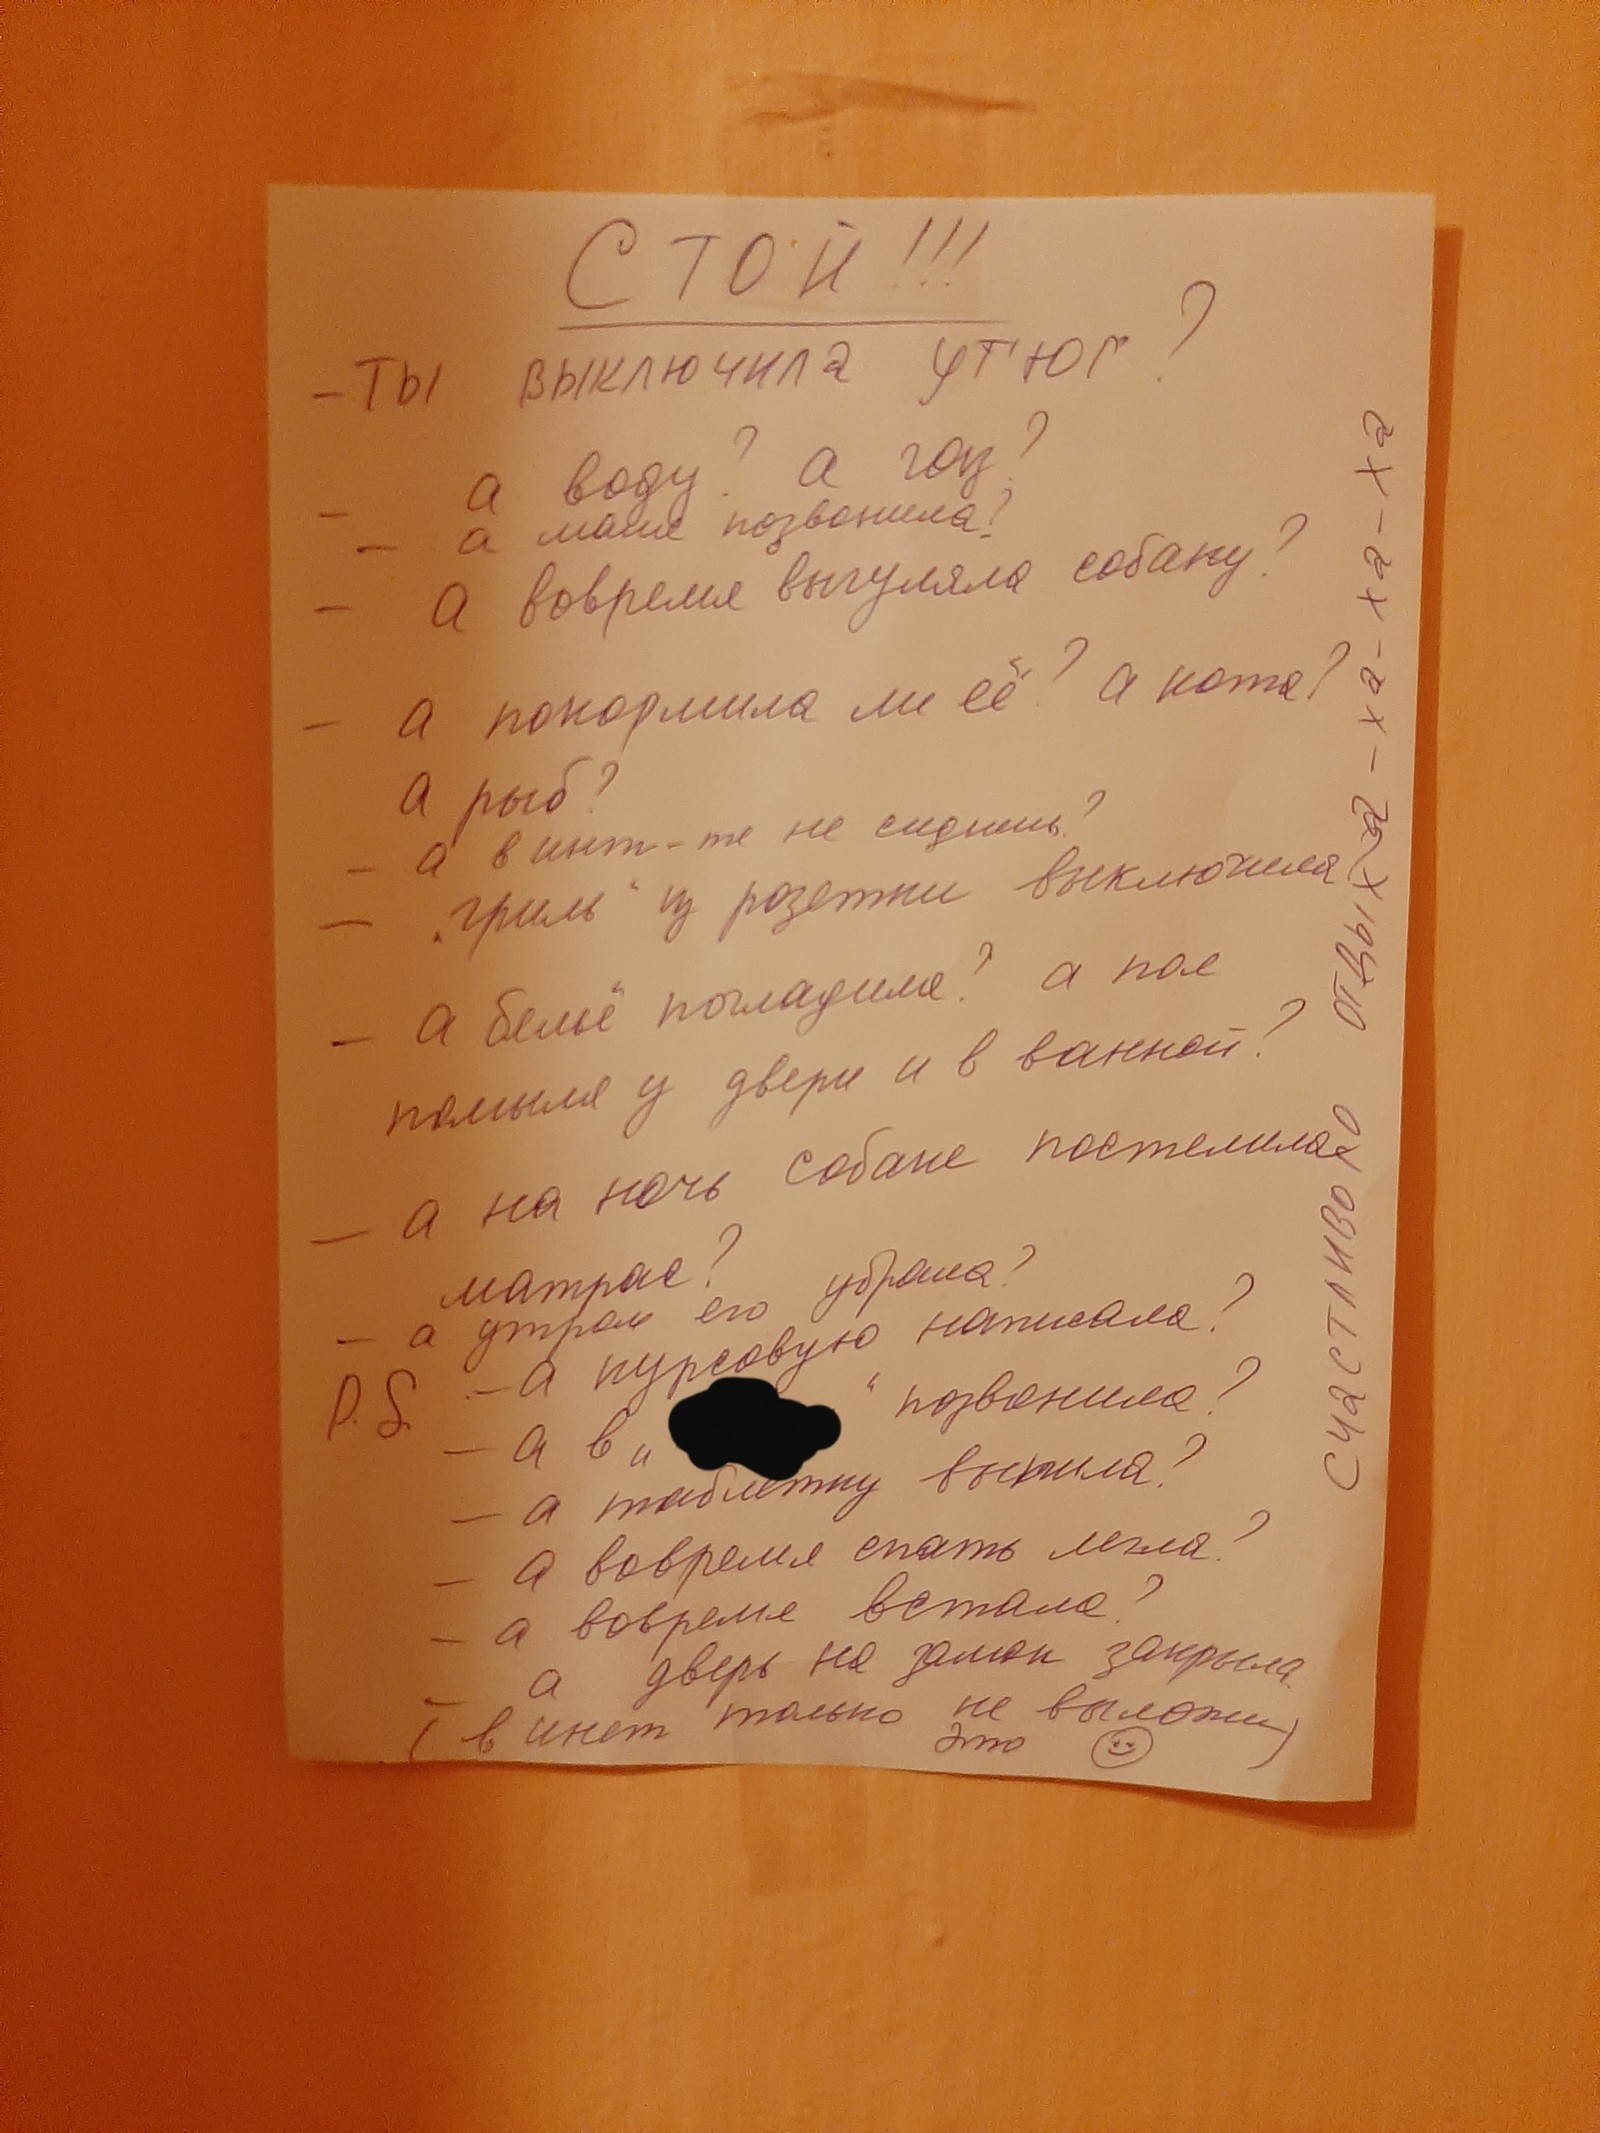 СТОЙ!!!
– ТЫ ВЫКЛЮЧИЛА УТЮГ?
– а воду? а газ?
– а маме позвонила?
– а вовремя выгуляла собаку?
– а покормила ли её? а кота?
а рыб?
– а в инт-те не сидишь?
– „гриль“ из розетки выключила?
– а бельё погладила? а пол
помыла у двери и в ванной?
– а на ночь собаке постелила
матрас?
– а утром его убрала?
P.S. – а курсовую написала?
– а в „ “ позвонила?
– а таблетку выпила?
– а вовремя спать легла?
– а вовремя встала?
– а дверь на замок закрыла
(в инет только не выложи)
это
СЧАСТЛИВОГО ОТДЫХА-ХА-ХА-ХА